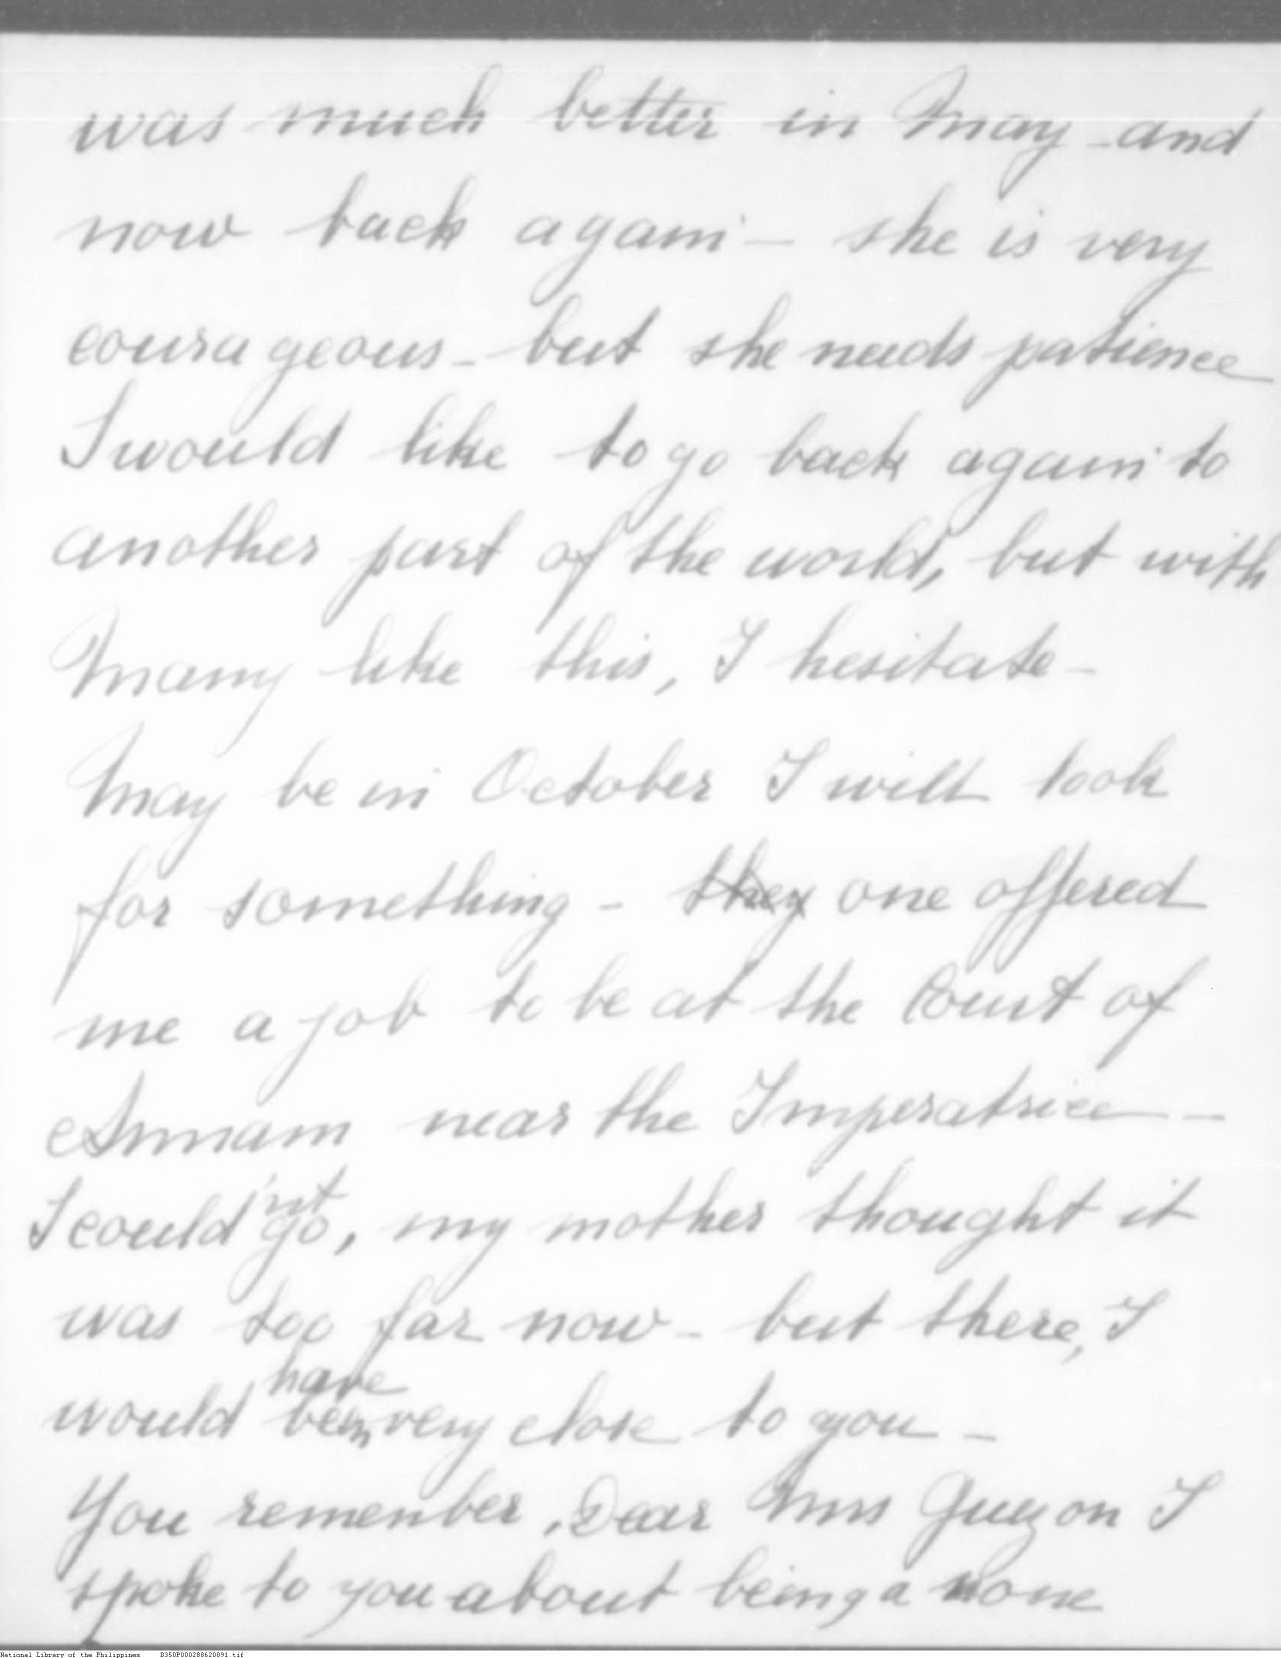 was much better in May - and
now back again - she is very
courageous - but she needs patience
I would like to go back again to
another part of the world, but with
Mamy like this, I hesitate -
May be in October I will look
for something - they one offered
me a job to be at the Court of
Annam near the Imperatrice -
I could'nt go, my mother thought it
was too far now - but there, I
would have been very close to you -
You remenber, Dear Mrs Quezon I
spoke to you about being a none
National Library of the Philippines D350P000288620091.tif